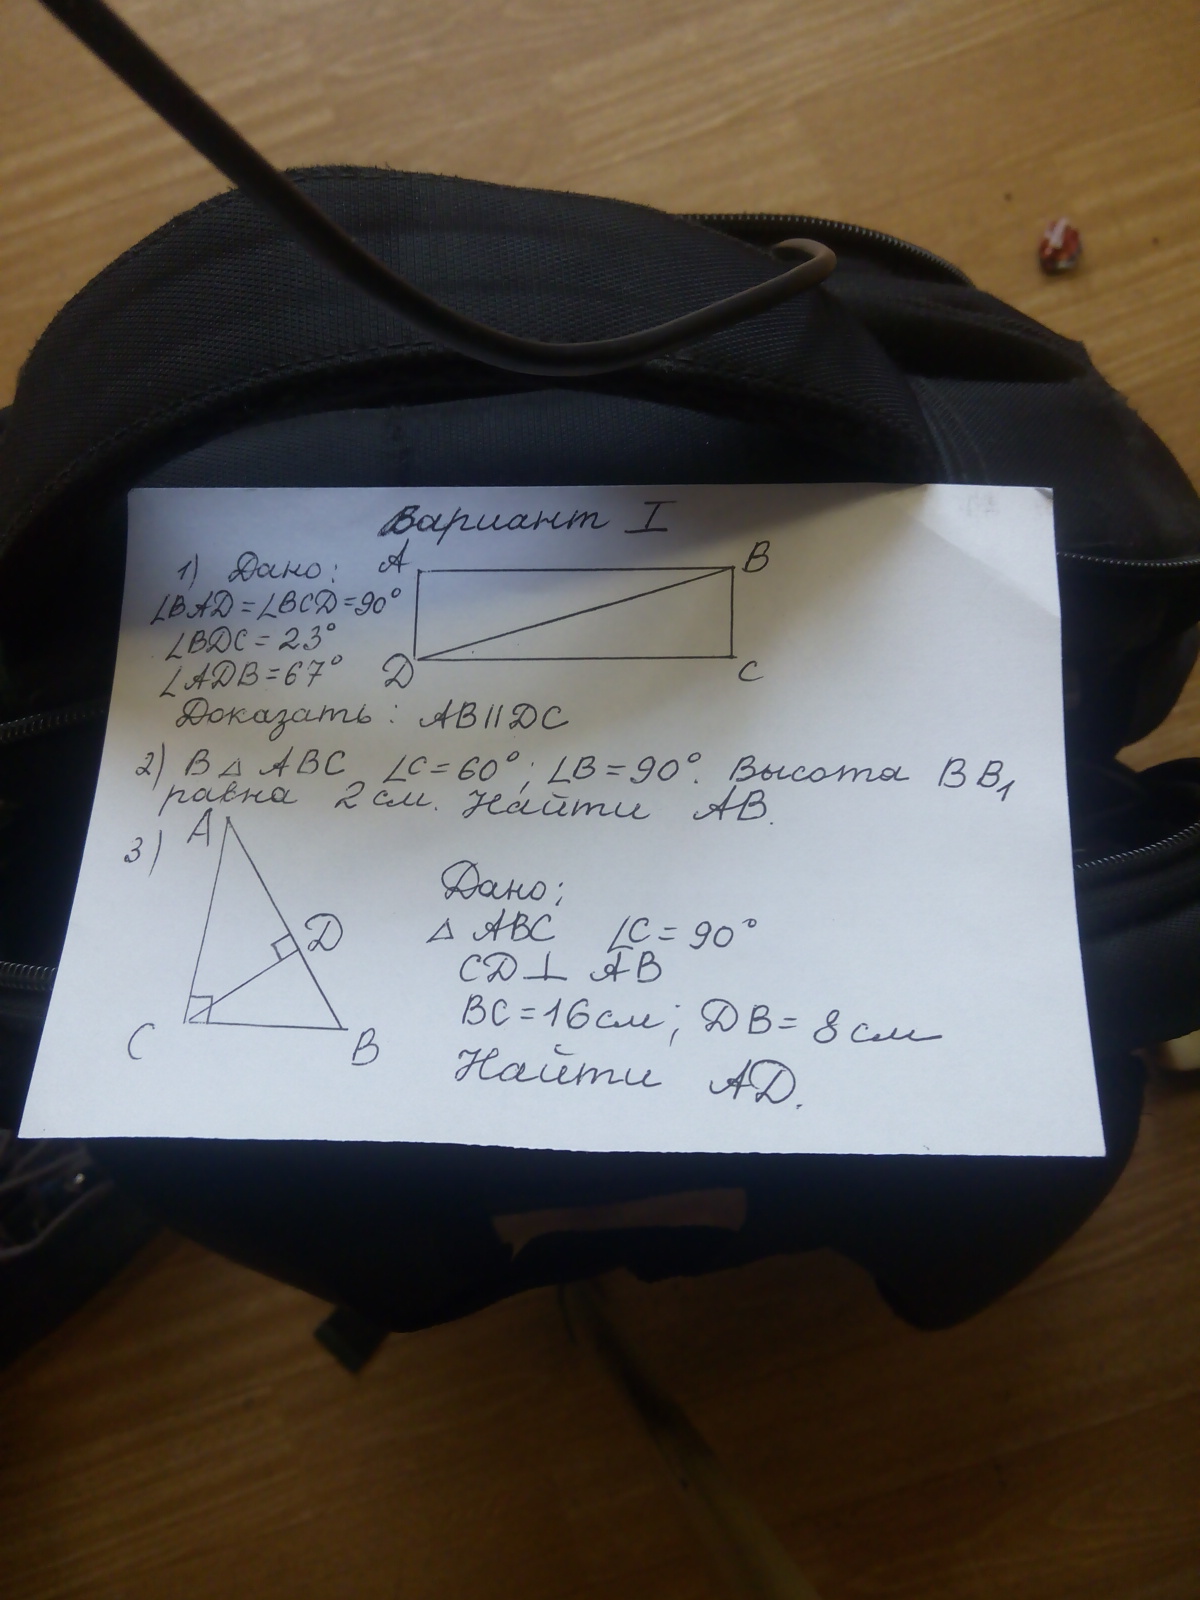 Вариант I
1) Дано: A B
∠BAD=∠BCD=90°
∠BDC=23°
∠ADB=67° D C
Доказать: AB||DC
2) В △ ABC ∠C=60°; ∠B=90°. Высота BB₁
равна 2 см. Найти AB.
3) A
Дано;
△ ABC ∠C=90°
D
CD⊥AB
BC=16см; DB=8см
C B
Найти AD.